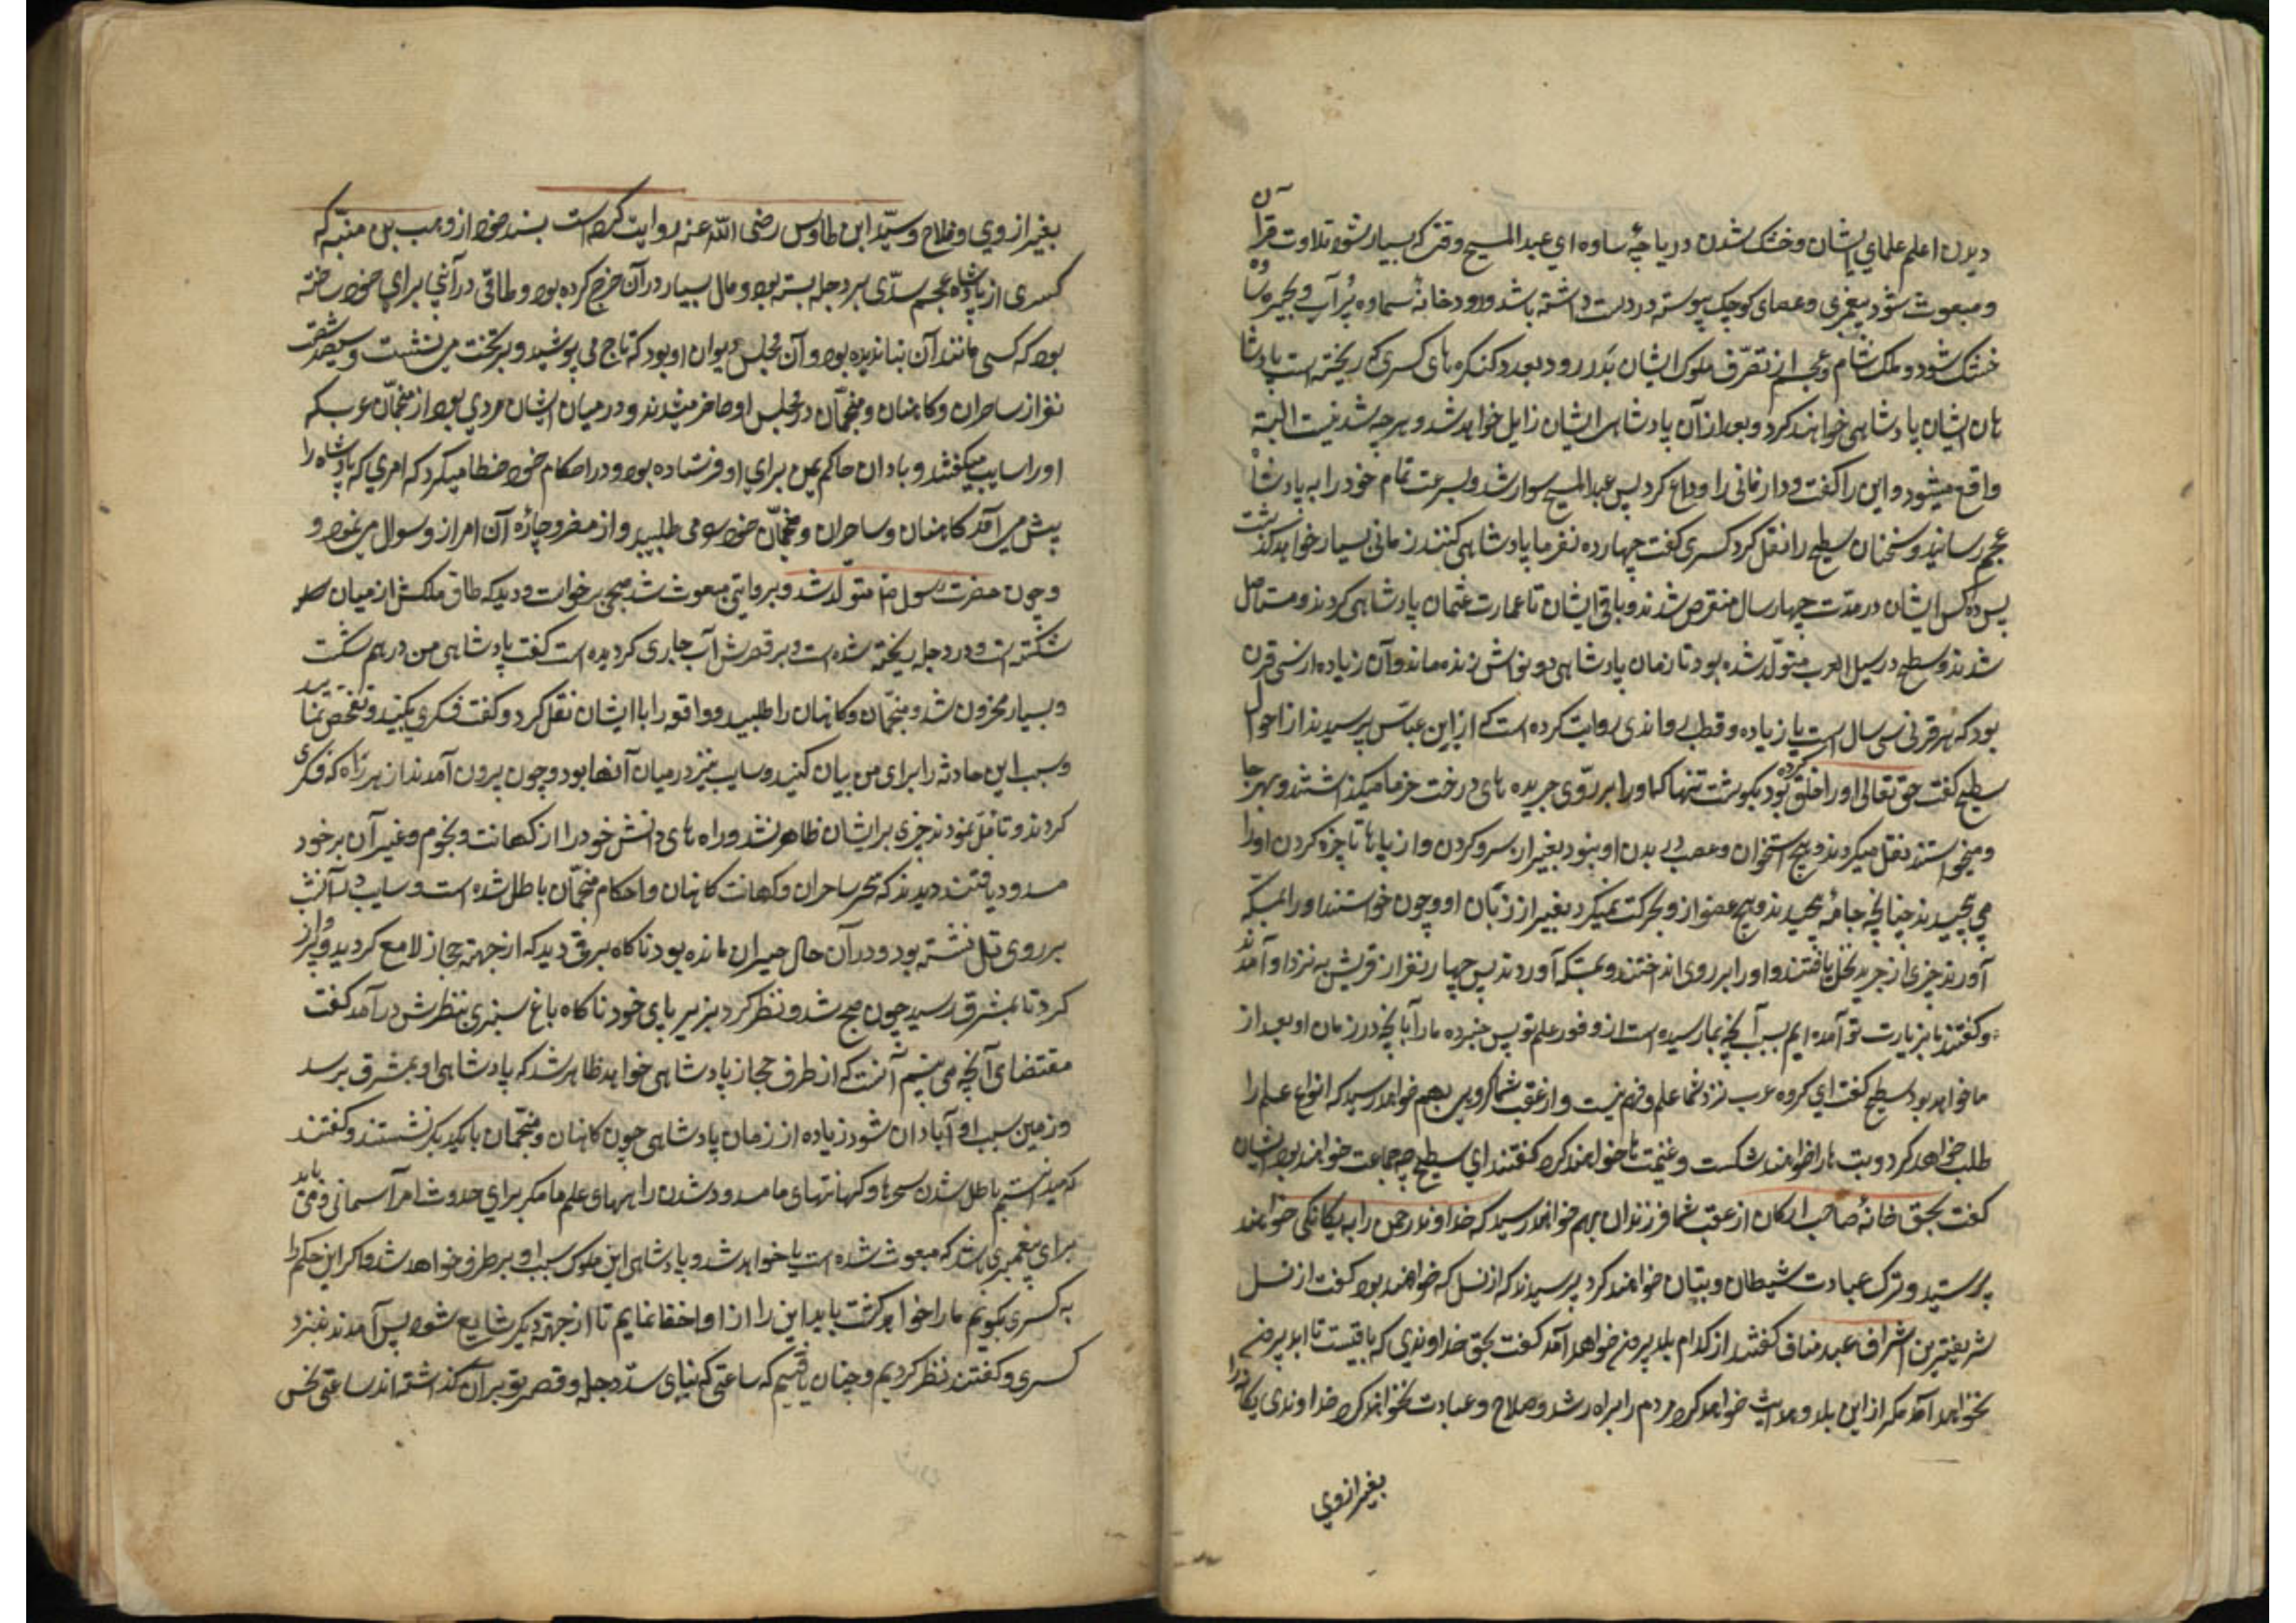 دیدن اعلم علمای ایشان و خشک شدن دریاچهٔ ساوه ای عبد المسیح وقتی که بسیار شود تلاوت قرآن
و مبعوث شود پیغمبری و عصای کوچک پیوسته در دست داشته باشد و رودخانهٔ سماوه پُر آب و بحیرهٔ ساوه
خشک شود و ملک شام و عجم از تصرّف ملوک ایشان بدر رود بعدد کنکره های کسری که ریخته است پادشا
هان ایشان پادشاهی خواهند کرد و بعد از آن پادشاهی ایشان زایل خواهد شد و هر چه شدنیست البته
واقع میشود و این را کفت و دار فانی را وداع کرد پس عبد المسیح سوار شد و بسرعت تمام خود را به پادشاه
عجم رسانید و سخنان سطیح را نقل کرد کسری کفت چهارده نفر ما پادشاهی کنند زمانی بسیار خواهد کذشت
پس ده کس ایشان در مدّت چهار سال منقرض شدند و باقی ایشان تا عمارت عثمان پادشاهی کردند و مستاصل
شدند و سطیح در سیل العرب متولّد شده بود تا زمان پادشاهی ذو نواس زنده ماند و آن زیاده از سی قرن
بود که هر قرنی سی سال است یا زیاده و قطب راوندی روایت کرده است که از ابن عباس پرسیدند از احوال
سطیح کفت حق تعالی او را خلق کرده بود بکوشت تنها که او را بر روی جریده های درخت خرما میکذاشتند و بهر جا
میخواستند نقل میکردند و هیچ استخوان و عصب در بدن او نبود بغیر از سر و کردن و از پاها تا چنبره کردن او را
می پیچیدند چنانچه جامه پیچیدند و هیچ عضو از و بحرکت نمیکرد بغیر از زبان او و چون خواستند او را بمکّه
آورند چیزی از جرید نخل بافتند و او را بر روی انداختند و بمکه آوردند پس چهار نفر از قریش به نزد او آمدند
و کفتند ما بزیارت تو آمده ایم بسبب آنچه بما رسیده است از وفور علم تو پس خبر ده ما را بآنچه در زمان ما و بعد از
ما خواهد بود سطیح کفت ای کروه عرب نزد شما علم و فهم نیست و از عقب شما کروهی بهم خواهد رسید که انواع علم را
طلب خواهد کرد و بت ها را خواهند شکست و غنیمت ها خواهند کرد کفتند ای سطیح چه جماعت خواهند بود ایشان
کفت بحق خانهٔ صاحب ارکان از عقب شما فرزندان بهم خواهد رسید که خداوند رحمن را به یکانکی خواهند
پرستید و ترک عبادت شیطان و بتان خواهند کرد پرسیدند که از نسل که خواهند بود کفت از نسل
شریفترین اشراف عبد مناف کفتند از کدام بلد بیرون خواهد آمد کفت بحق خداوندی که باقیست تا ابد بیرون
نخواهد آمد مکر از این بلد و هدایت خواهد کرد مردم را براه رشد و صلاح و عبادت خواهد کرد خداوندی یکانه را
بغیر از وی
بغیر از وی و فلاح و سیّد ابن طاوس رضی اللّه عنه روایت کرده است بسند خود از وهب بن منبّه که
کسری از پادشاه عجم سدّی بر دجله بسته بود و مال بسیار در آن خرج کرده بود و طاقی در آنجا برای خود ساخته
بود که کسی مانند آن بنا ندیده بود و آن مجلس دیوان او بود که تاج می پوشید و بر تخت می نشست و سیصد و شصت
نفر از ساحران و کاهنان و منجّمان در مجلس او حاضر میشدند و در میان ایشان مردی بود از منجّمان عرب که
او را سایب میکفتند و بادان حاکم یمن برای او فرستاده بود و در احکام خود خطا میکرد که امری که پادشاه را
پیش می آمد کاهنان و ساحران و منجّمان خود را می طلبید و از مفر و چاره آن امر از و سوال می نمود و
و چون حضرت رسول ص متولّد شد و بروایتی مبعوث شد صبحی برخواست و دید که طاق ملکش از میان
شکسته است و در دجله ریخته شده است و بر قصرش آب جاری کردیده است کفت پادشاهی من درهم شکست
و بسیار محزون شد و منجّمان و کاهنان را طلبید و واقعه را با ایشان نقل کرد و کفت فکری بکنید و تفحص نمایید
و سبب این حادثه را برای من بیان کنید و سایب نیز در میان آنها بود و چون بیرون آمدند از هر راه که فکری
کردند و تامّل نمودند چیزی بر ایشان ظاهر نشد و راه های دانش خود را از کهانت و نجوم و غیر آن بر خود
مسدود یافتند دیدند که سحر ساحران و کهانت کاهنان و احکام منجّمان باطل شده است و سایب در آن شب
بر روی تلی نشسته بود و در آن حال حیران مانده بود ناکاه برقی دید که از جهة حجاز لامع کردید و پرواز
کرد تا بمشرق رسید چون صبح شد و نظر کرد بزیر پای خود ناکاه باغ سبزی بنظرش در آمد کفت
مقتضای آنچه می بینم آنست که از طرف حجاز پادشاهی خواهد ظاهر شد که پادشاهی او بمشرق برسد
و زمین بسبب او آبادان شود زیاده از زمان پادشاهی چون کاهنان و منجّمان با یکدیکر نشستند و کفتند
که میدانستیم باطل شدن سحرها و کهانتهای ما مسدود شدن راههای علم ما مکر برای حدوث امر آسمانی و می باید
برای پیغمبری باشد که مبعوث شده است یا خواهد شد و پادشاهی این ملوک بسبب او بر طرف خواهد شد و اکر این حکم را
به کسری بکوئیم ما را خواهد کشت باید این را از او اخفا نمایم تا از جهة دیکر شایع شود پس آمدند بنزد
کسری و کفتند نظر کردیم و چنان یافتیم که ساعتی که بنای سدّ دجله و قصر تو بر آن کذاشته اند ساعتی نحس